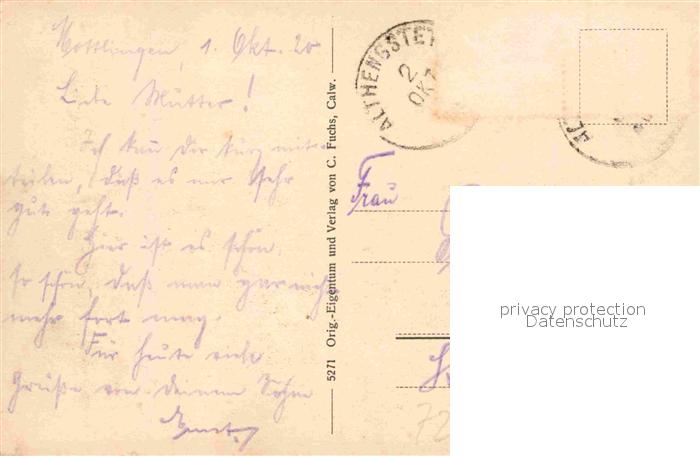 Möttlingen, 1. Okt. 20
Liebe Mutter!
Ich kann Dir kurz mit-
teilen, daß es mir sehr
gut geht.
Hier ist es schön,
so schön, daß man gar nicht
mehr fort mag.
Für heute viele
Grüße von Deinem Sohne
Ernst.
5271 Orig.-Eigentum und Verlag von C. Fuchs, Calw.
ALTHENGSTET
2
OKT
Frau
72
privacy protection
Datenschutz